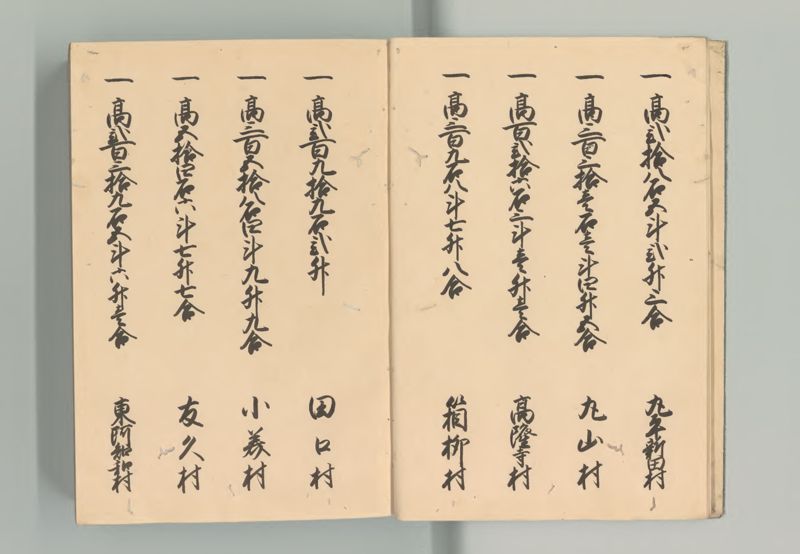 一 高弐拾八石五斗弐升三合 九平新田村
一 高三百三拾壱石壱斗四升五合 丸山村
一 高百弐拾六石三斗壱升壱合 高隆寺村
一 高三百九石八斗七升八合 箱柳村
一 高弐百九拾九石弐升 田口村
一 高三百五拾八石四斗九升九合 小美村
一 高五拾四石六斗七升七合 友久村
一 高弐百三拾九石五斗六升壱合 東阿知和村